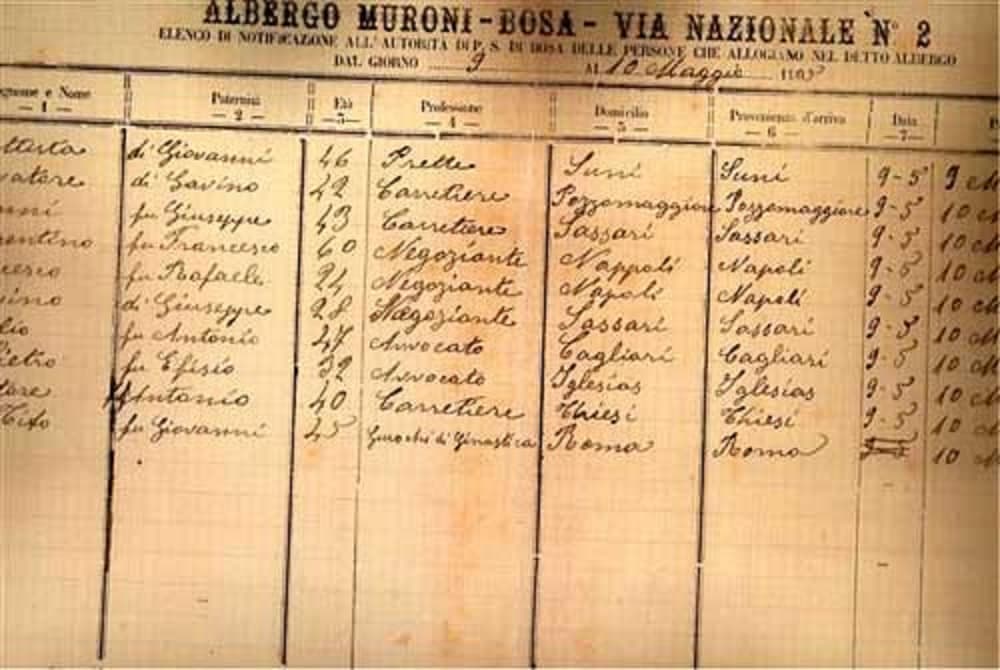 ALBERGO MURONI - BOSA - VIA NAZIONALE N° 2
ELENCO DI NOTIFICAZIONE ALL'AUTORITÀ DI P. S. DI BOSA DELLE PERSONE CHE ALLOGIANO NEL DETTO ALBERGO
DAL GIORNO 9 AL 10 Maggio
gnome e Nome Paternità Età Professione Domicilio Provenienza d'arrivo Data
— 1 — — 2 — — 3 — — 4 — — 5 — — 6 — — 7 —
di Giovanni 46 Prette Suni Suni 9-5 9 M
vatore di Gavino 42 Carretiere Pozzomaggiore Pozzomaggiore 9-5 10 M
nni fu Giuseppe 43 Carretiere Sassari Sassari 9-5 10 M
rentino fu Francesco 60 Negoziante Nappoli Napoli 9-5 10 M
cesco fu Rafaele 24 Negoziante Napoli Napoli 9-5 10 M
ino di Giuseppe 28 Negoziante Sassari Sassari 9-5 10 M
lio fu Antonio 47 Avvocato Cagliari Cagliari 9-5 10 M
ietro fu Efisio 32 Avvocato Iglesias Iglesias 9-5 10 M
tore Antonio 40 Carretiere Thiesi Thiesi 9-5 10 M
Tito fu Giovanni 45 di Ginastica Roma Roma 10 M